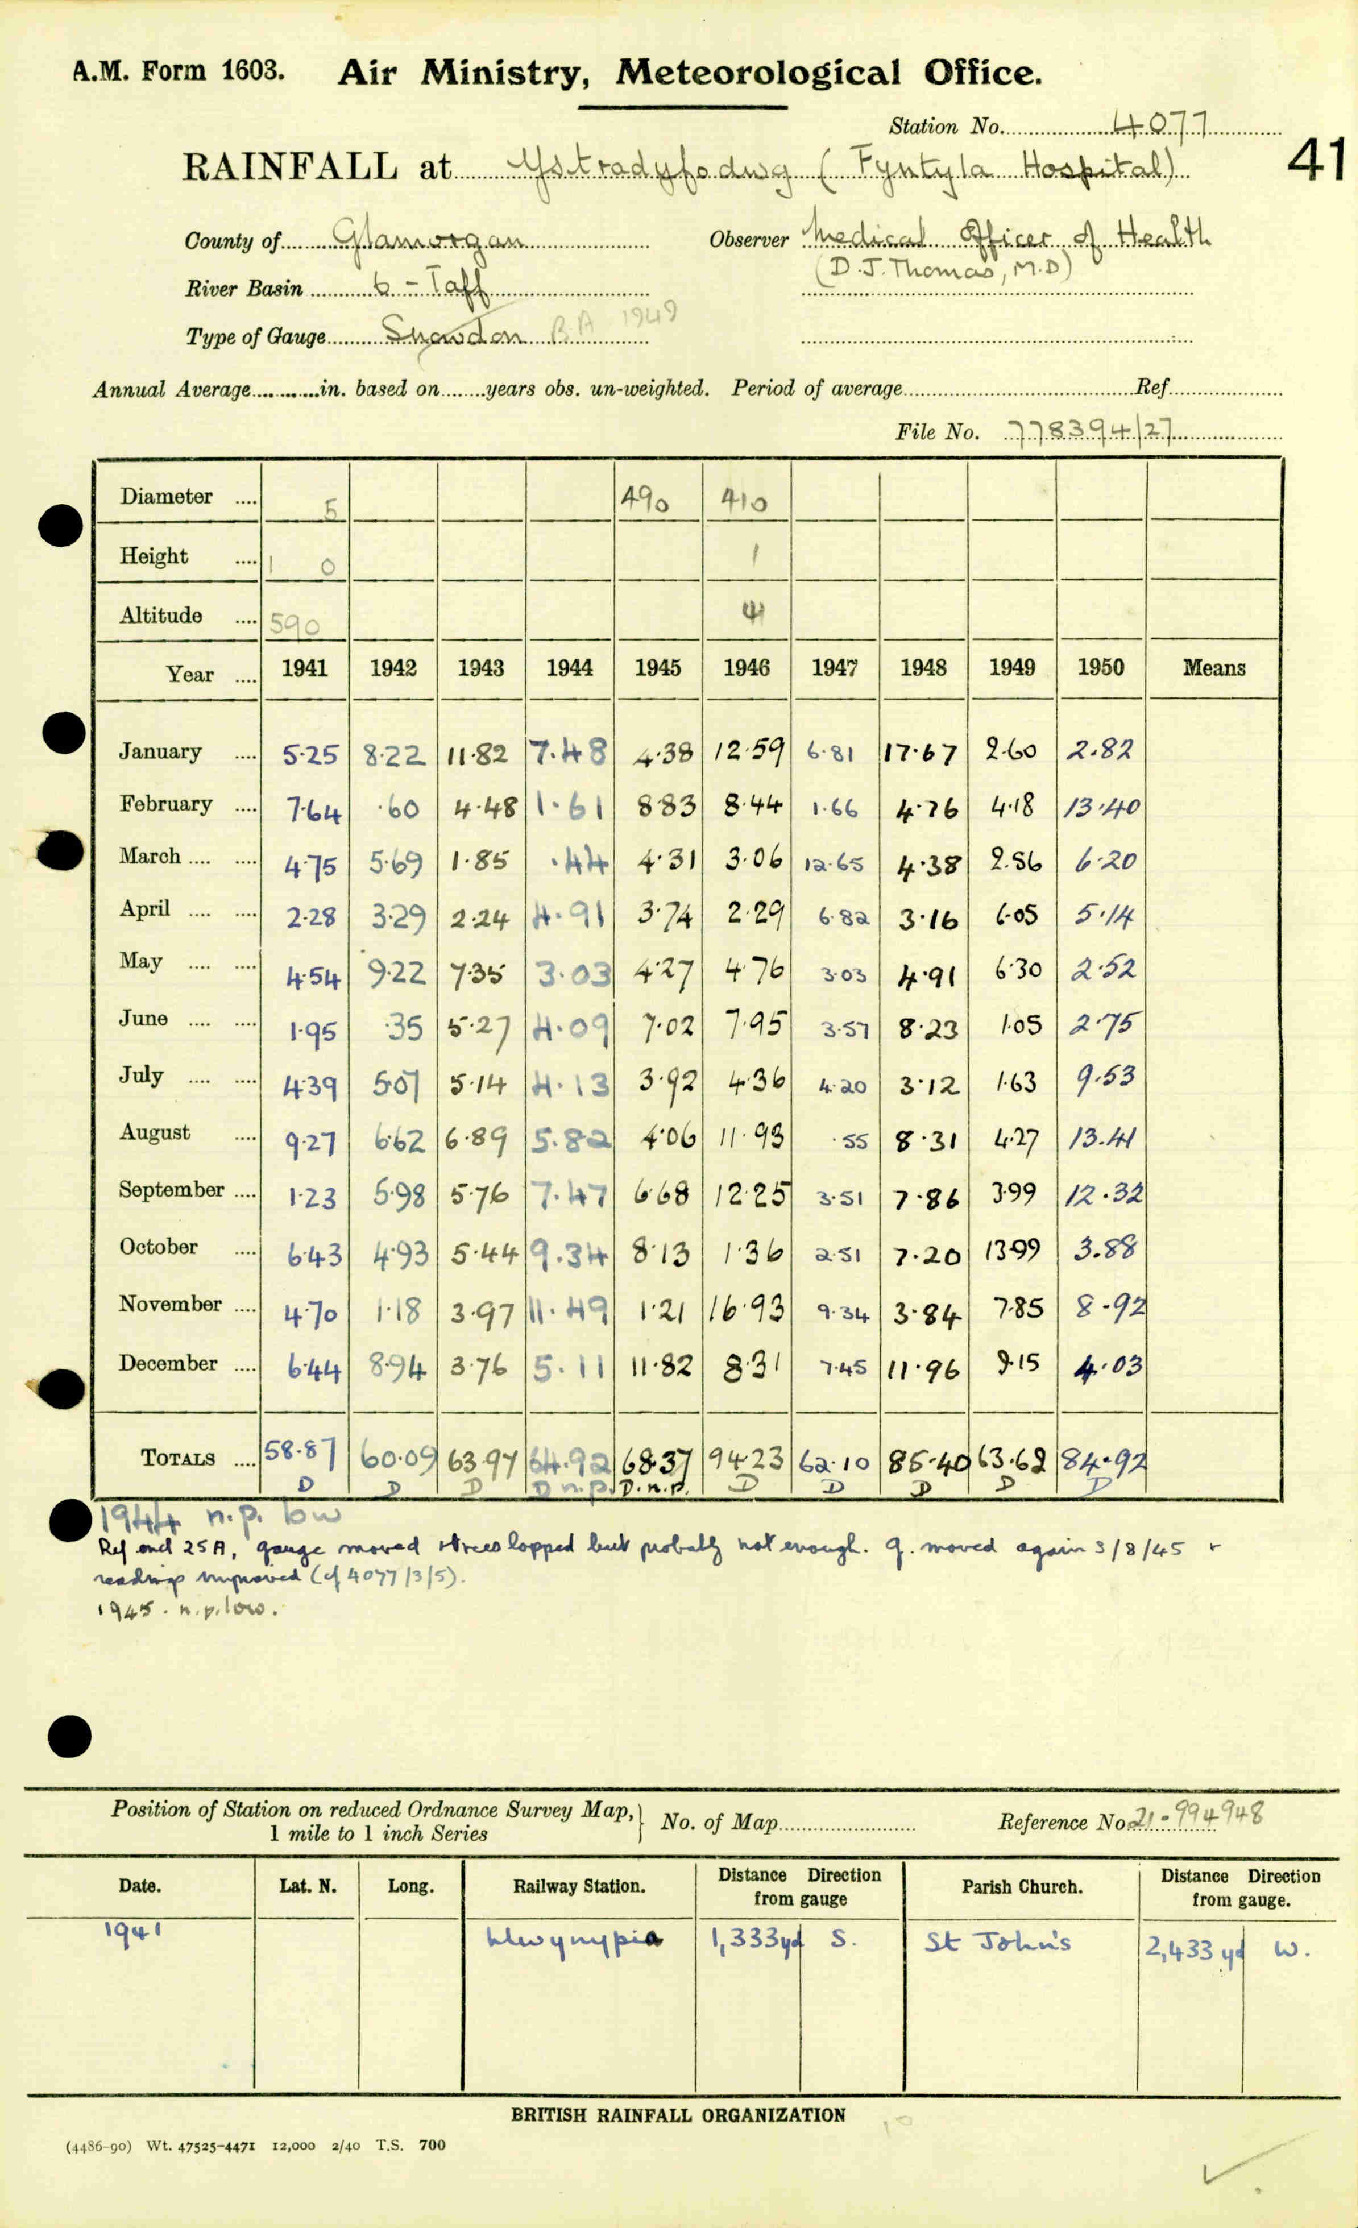 A.M. Form 1603. Air Ministry, Meteorological Office.
Station No. 4077
41
RAINFALL at Ystradyfodwg (Tyntyla Hospital)
County of Glamorgan Observer Medical Officer of Health
(D.J. Thomas, M.D)
River Basin 6 - Taff
Type of Gauge Snowdon BA 1949
Annual Average in. based on years obs. un-weighted. Period of average Ref
File No. 778394/27
Diameter 5 490 410
Height 1 0 1
Altitude 590
Year 1941 1942 1943 1944 1945 1946 1947 1948 1949 1950 Means
January 5.25 8.22 11.82 7.48 4.38 12.59 6.81 17.67 2.60 2.82
February 7.64 .60 4.48 1.61 8.83 8.44 1.66 4.76 4.18 13.40
March 4.75 5.69 1.85 .44 4.31 3.06 12.65 4.38 2.56 6.20
April 2.28 3.29 2.24 4.91 3.74 2.29 6.82 3.16 6.05 5.14
May 4.54 9.22 7.35 3.03 4.27 4.76 3.03 4.91 6.30 2.52
June 1.95 .35 5.27 4.09 7.02 7.95 3.57 8.23 1.05 2.75
July 4.39 5.07 5.14 4.13 3.92 4.36 4.20 3.12 1.63 9.53
August 9.27 6.62 6.89 5.82 4.06 11.93 .55 8.31 4.27 13.41
September 1.23 5.98 5.76 7.47 6.68 12.25 3.51 7.86 3.99 12.32
October 6.43 4.93 5.44 9.34 8.13 1.36 2.51 7.20 13.99 3.88
November 4.70 1.18 3.97 11.49 1.21 16.93 9.34 3.84 7.85 8.92
December 6.44 8.94 3.76 5.11 11.82 8.31 7.45 11.96 9.15 4.03
TOTALS 58.87 60.09 63.97 64.92 68.37 94.23 62.10 85.40 63.62 84.92
D D D D n.p. D.n.p. D D D D D
1944 n.p. low
Ref encl 25A, gauge moved & trees lopped but probably not enough. g. moved again 3/8/45 +
readings improved (cf 4077/3/5).
1945. n.p. low.
Position of Station on reduced Ordnance Survey Map,
1 mile to 1 inch Series
No. of Map Reference No. 21-994948
Date. Lat. N. Long. Railway Station. Distance Direction from gauge Parish Church. Distance Direction from gauge.
1941 Llwynypia 1,333yd S. St John's 2,433 yd W.
BRITISH RAINFALL ORGANIZATION
(4486-90) Wt. 47525-4471 12,000 2/40 T.S. 700